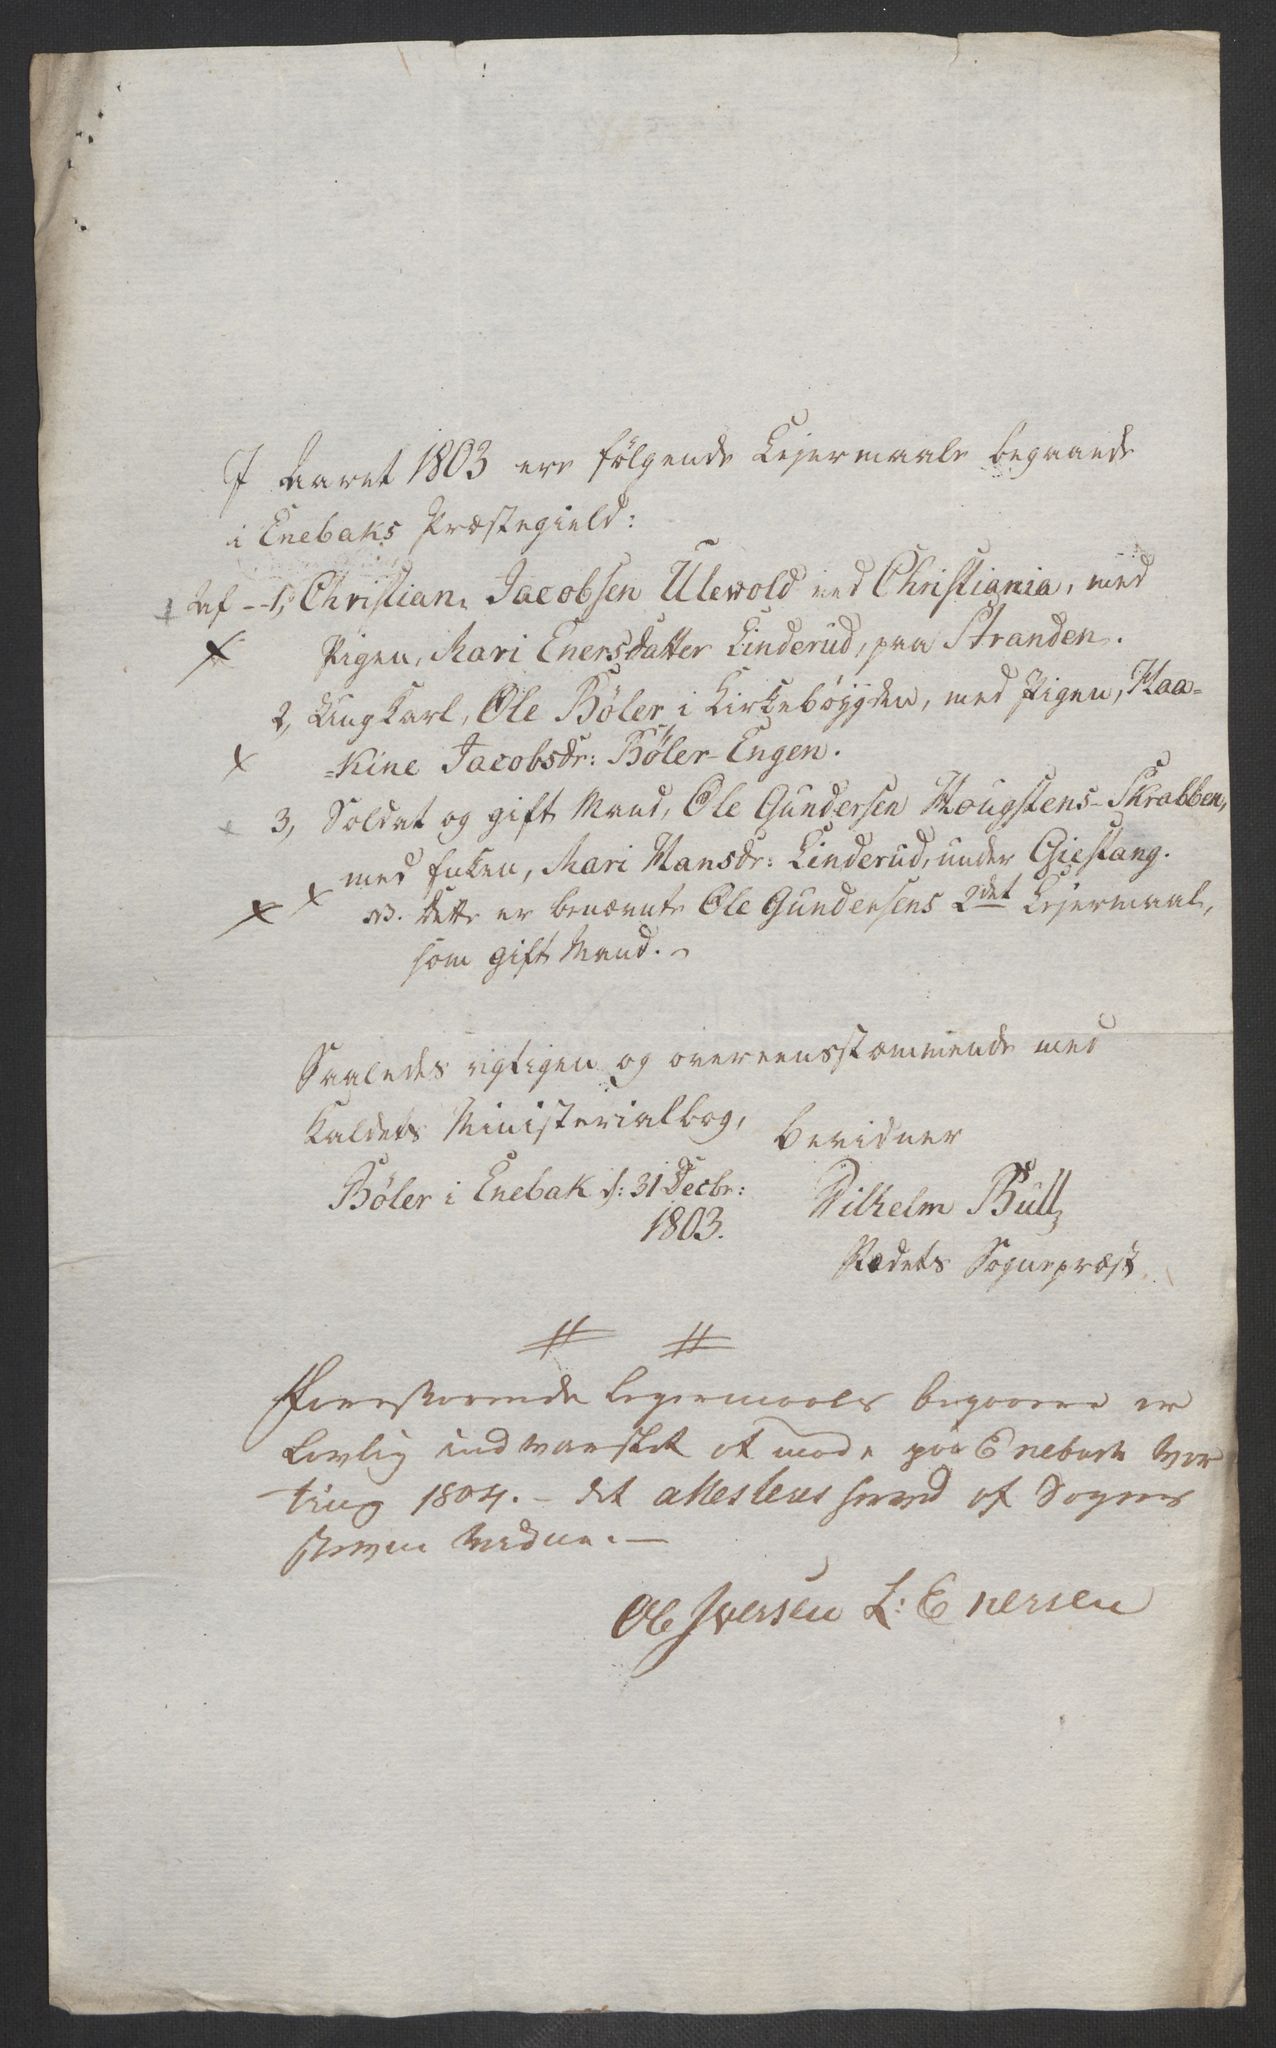 I Aaret 1803 ere følgende Lejermaale begaaede
i Enebaks Præstegield:
Af -- 1, Christian Jacobsen Ulewold ved Christiania, med
Pigen, Mari Enersdatter Linderud, paa Stranden.
2, Ung Karl, Ole Bøler i Kirkebøygden, med Pigen, Haa=
=kine Jacobsdr: Bøler-Engen.
3, Soldat og gift Mand, Ole Gundersen Hougstens-Skrabben,
med Enken, Mari Hansdr: Linderud, under Gieslang.
NB. Dette er benævnte Ole Gundersens 2det Lejermaal,
som gift Mand.
Saaledes rigtigen og overeensstæmmende med
Kaldets Ministerialbog, bevidner
Bøler i Enebak d: 31 Decbr: Wilhelm Bull,
1803.
Stædets Sognepræst.
Forestaaende Legermaals begaaere er
Lovlig indvarslet at møde paa Enebach Vor
ting 1804. - det attesteres herved af Sognes
stevne Vidne. —
Ole Iversen L: Enersen